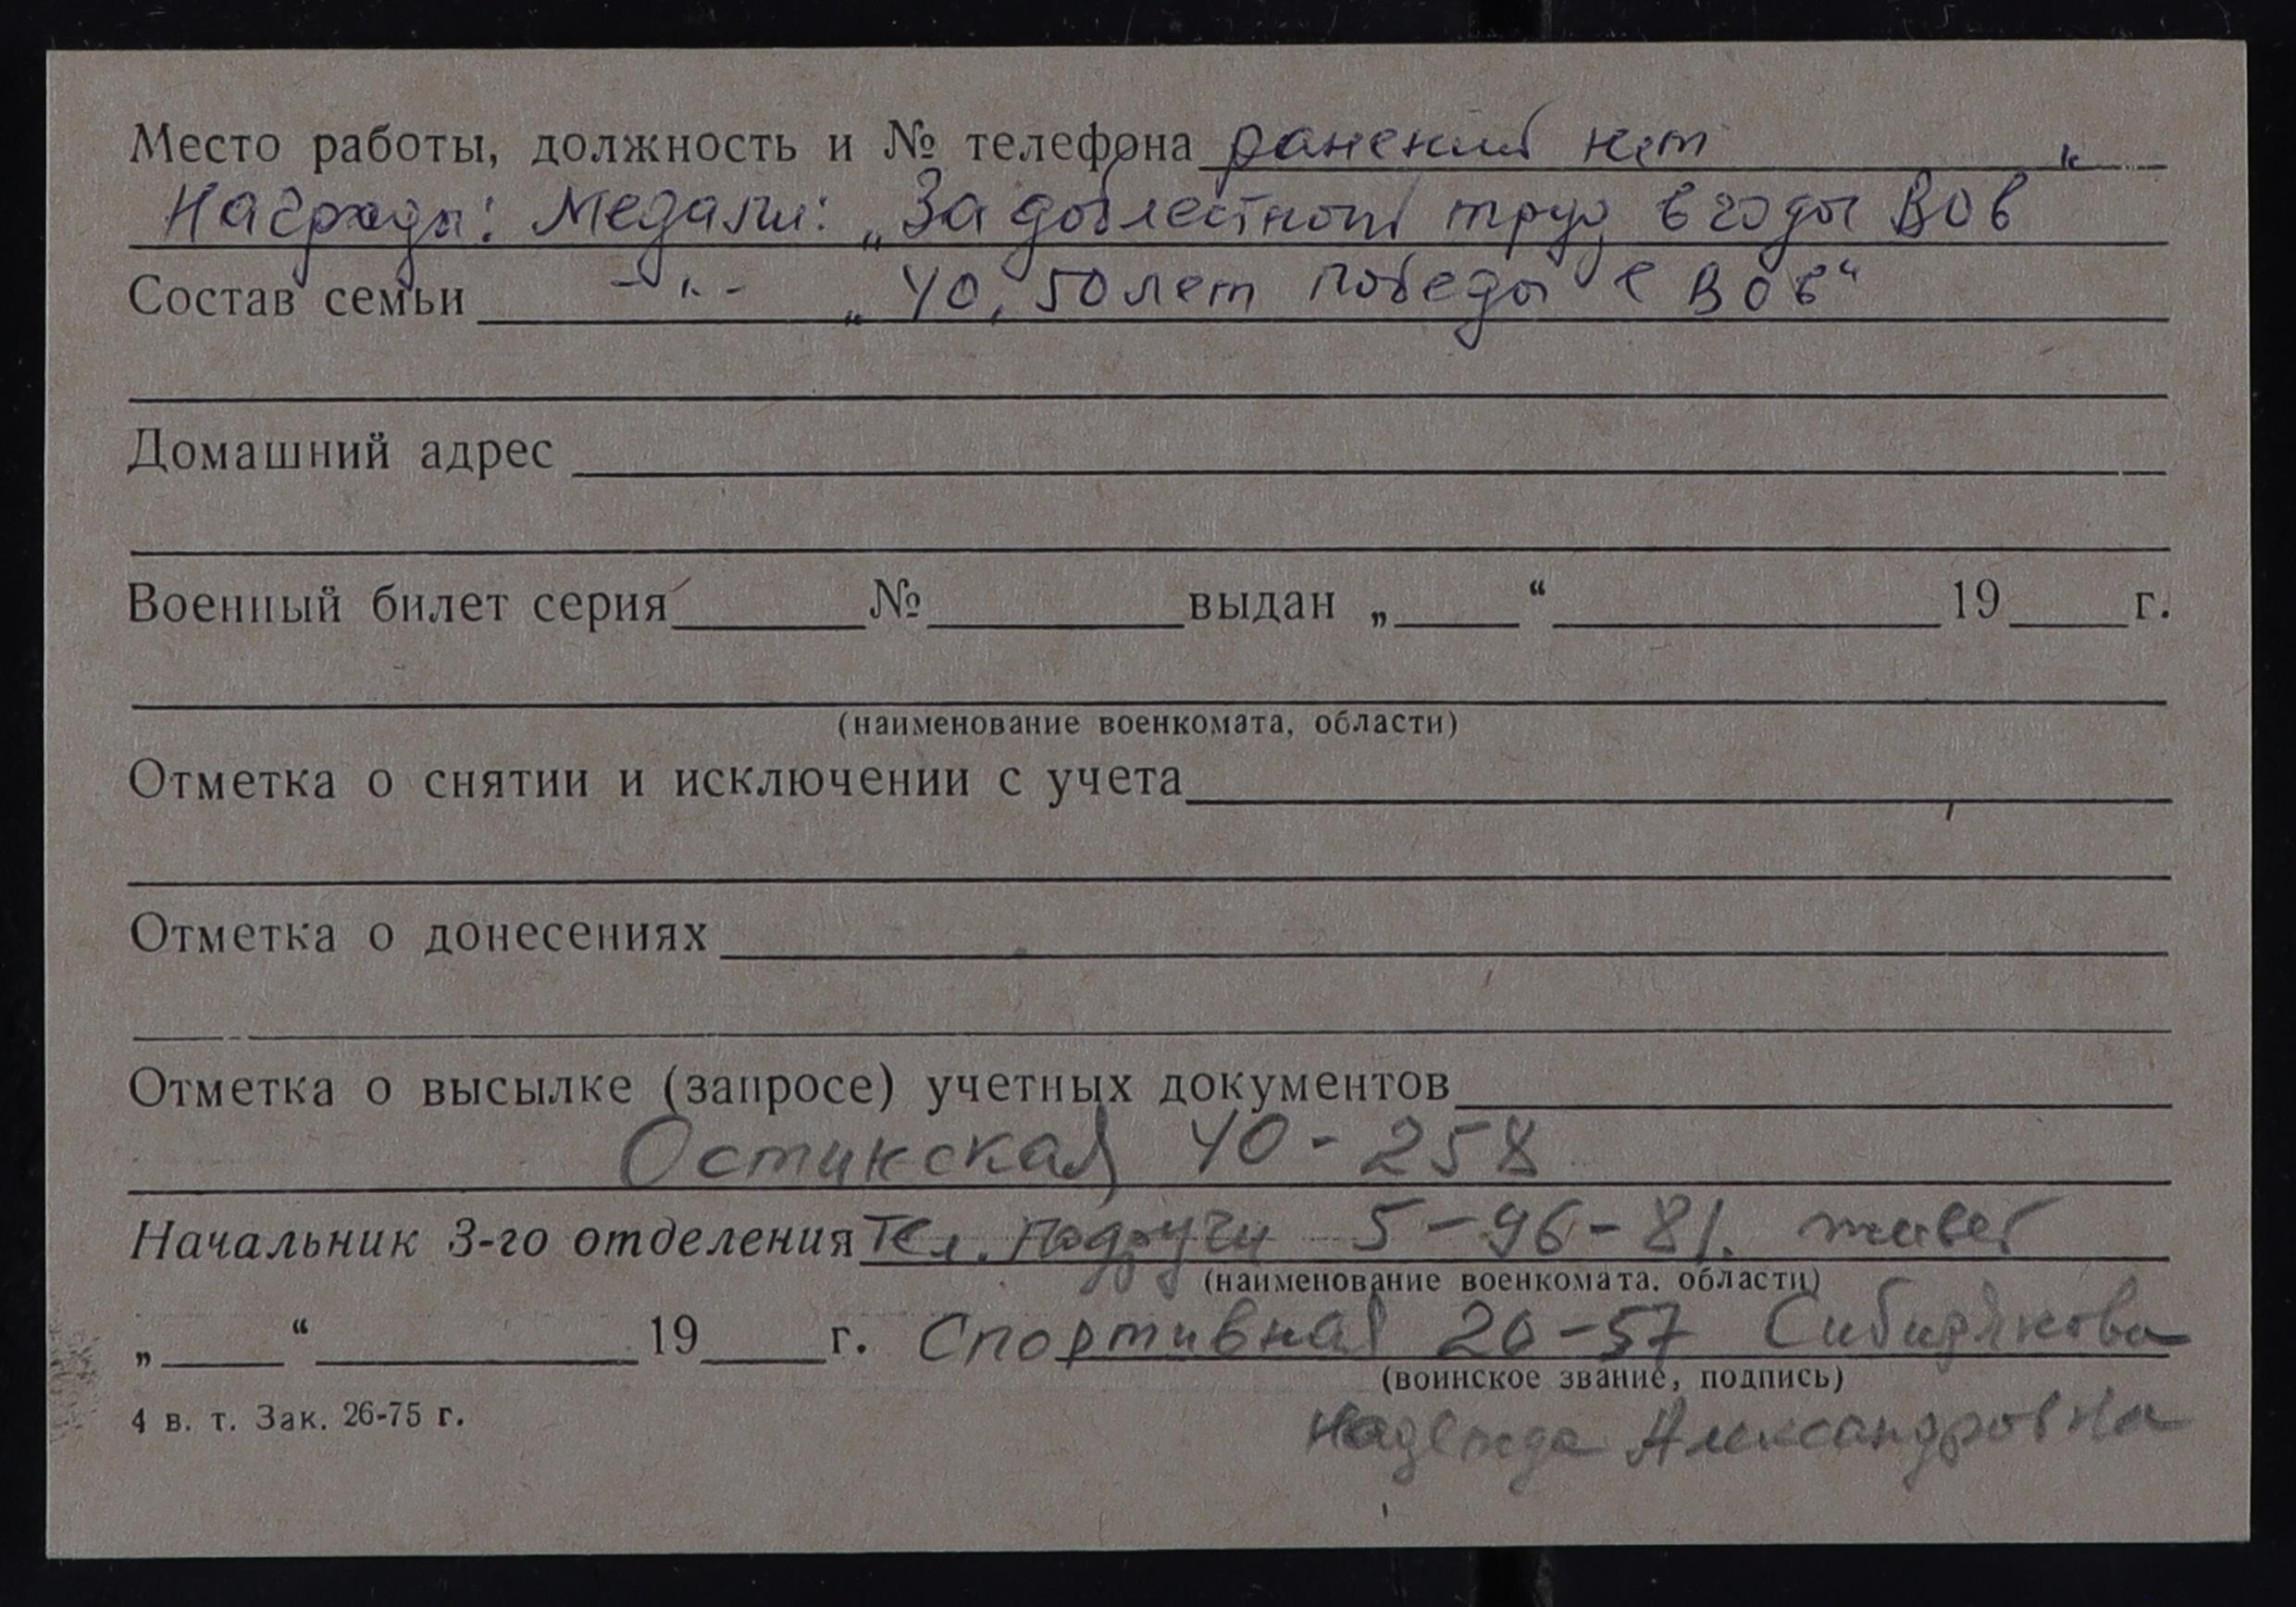 Место работы, должность и № телефона ранений нет "
Награды: Медали: „За доблестный труд в годы ВОв
Состав семьи -"- „40, 50 лет победы в ВОв“
Домашний адрес
Военный билет серия № выдан „ “ 19 г.
(наименование военкомата, области)
Отметка о снятии и исключении с учета
Отметка о донесениях
Отметка о высылке (запросе) учетных документов
Остинская 40-258
Начальник 3-го отделения Тел. подруги 5-96-81. живет
(наименование военкомата, области)
„ “ 19 г. Спортивная 26-57 Сибирякова
(воинское звание, подпись)
4 в. т. Зак. 26-75 г.
Надежда Александровна